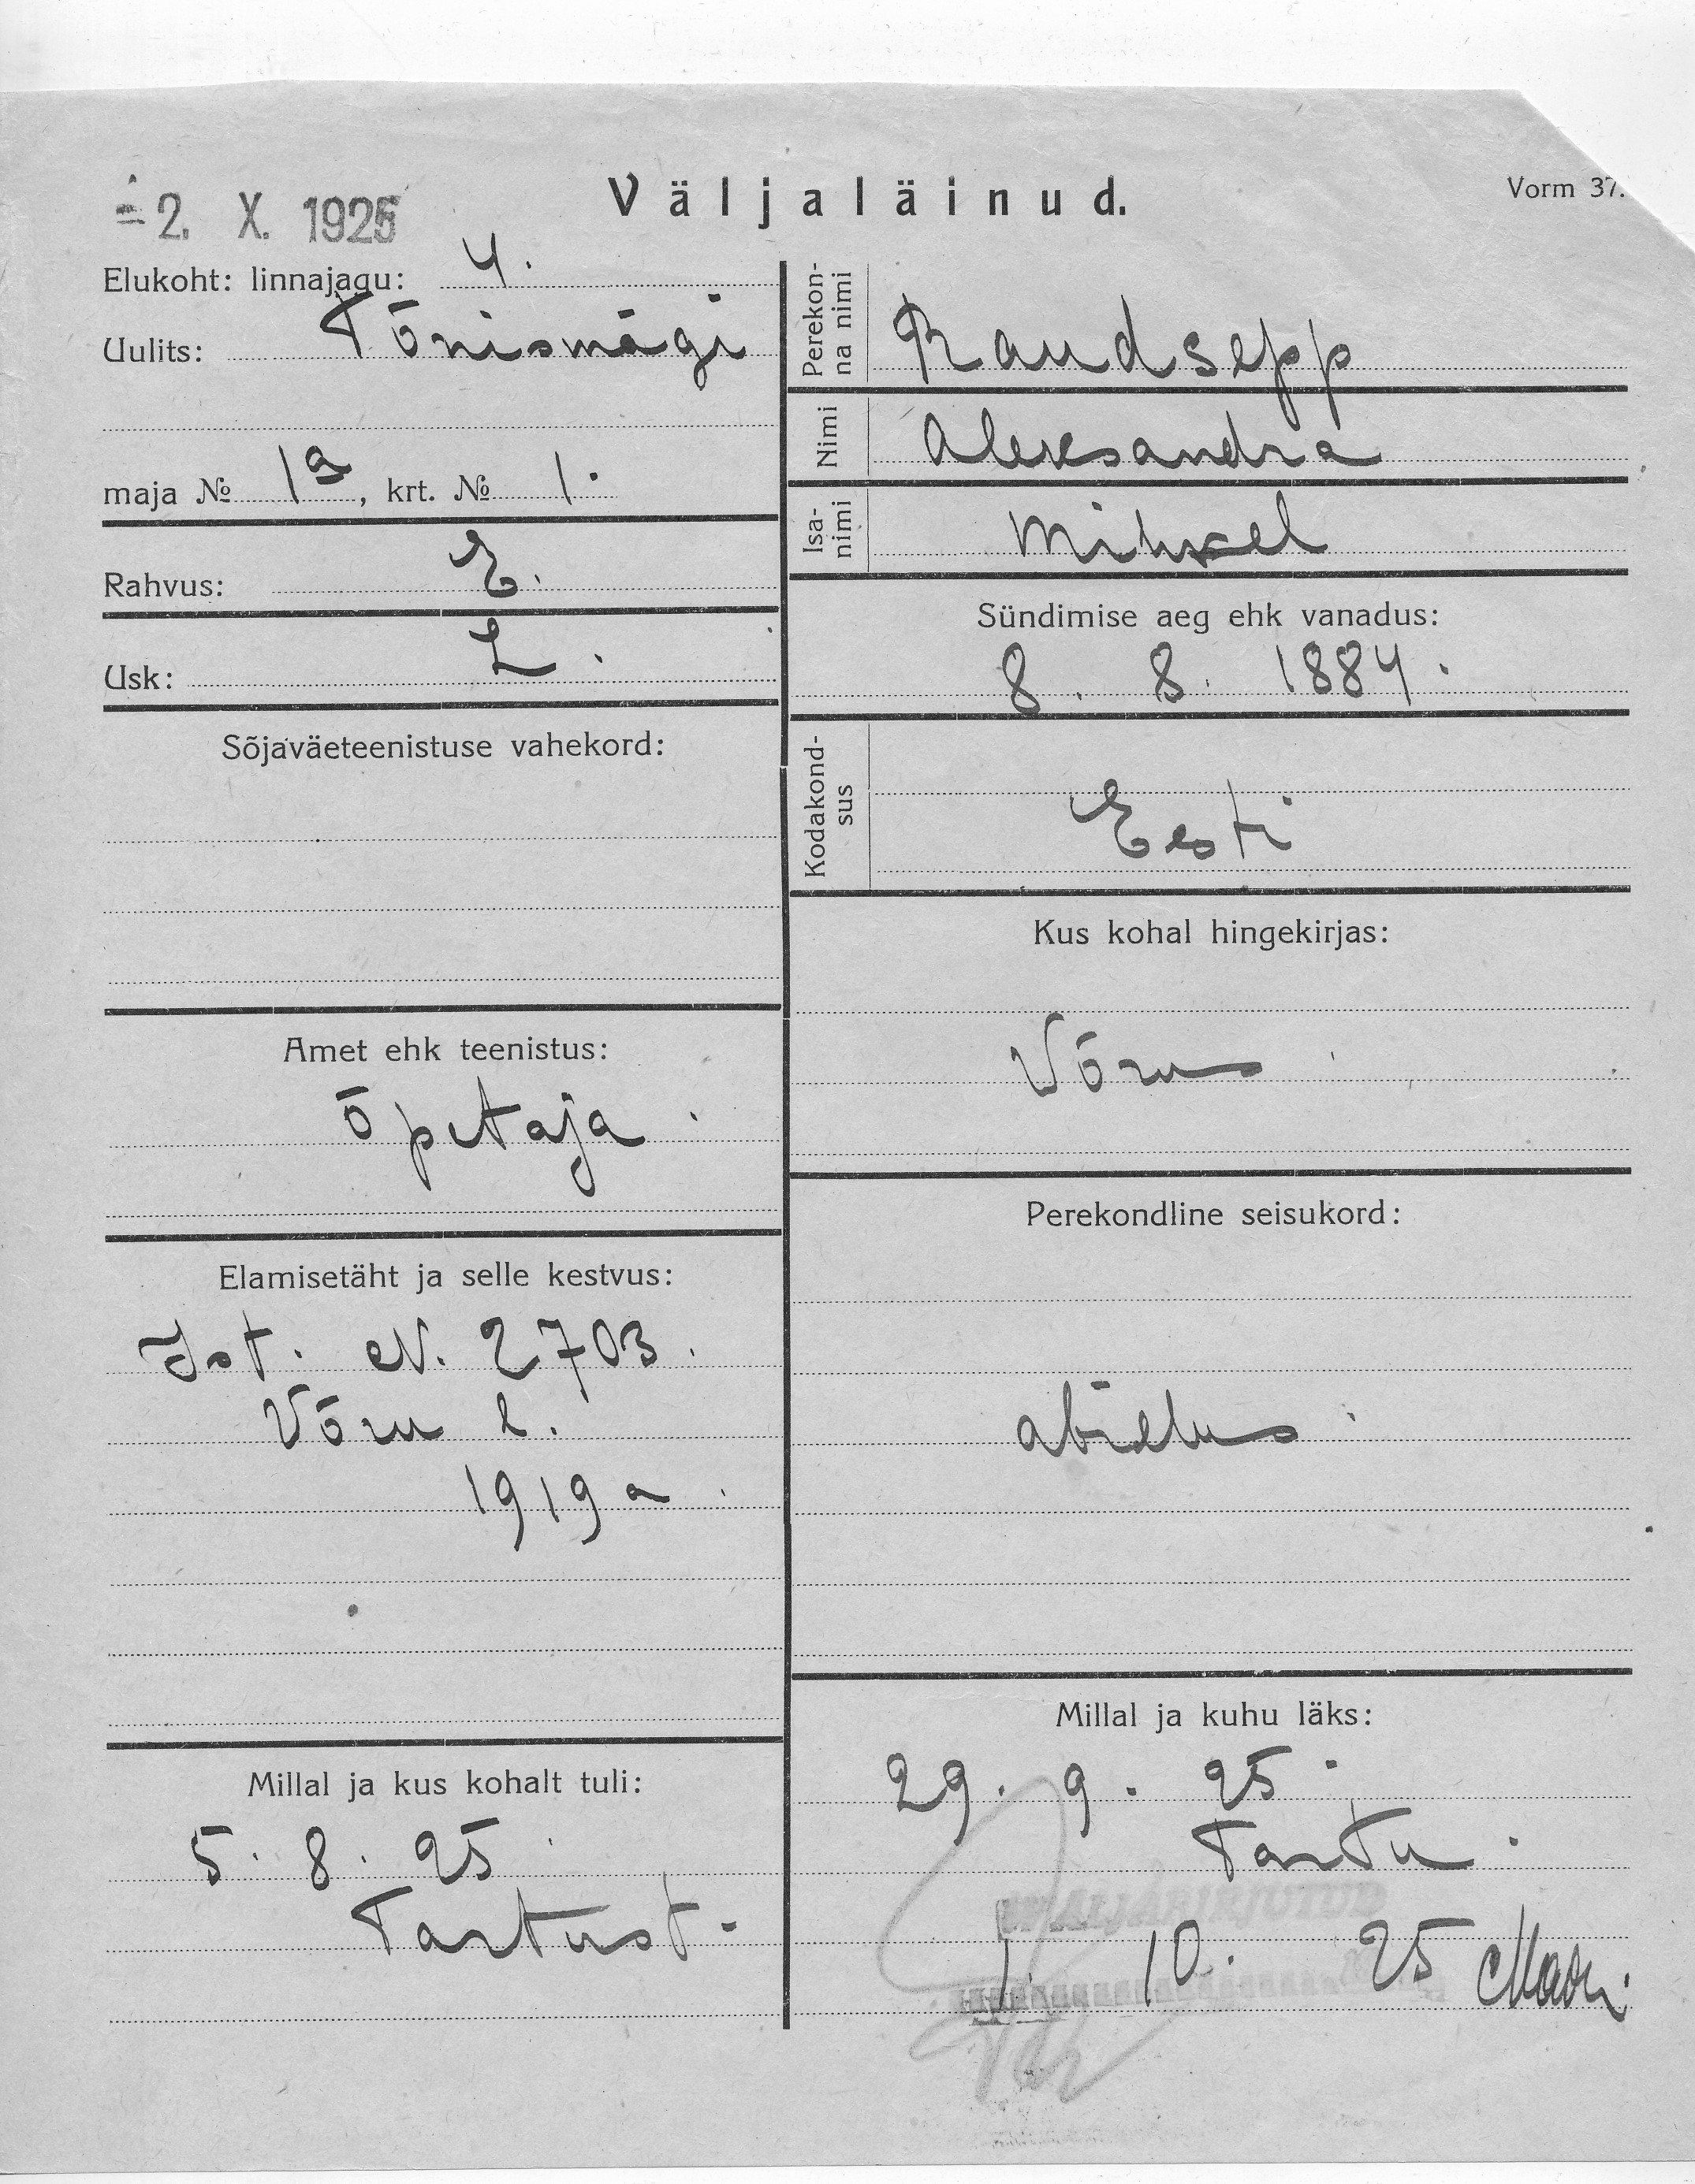 Väljaläinud.
Vorm 37.
-2. X. 1925
Elukoht: linnajagu: 4.
Uulits: Tõnismägi
maja № 1a, krt. № 1.
Rahvus: E.
Usk: L.
Sõjaväeteenistuse vahekord:
Amet ehk teenistus:
õpetaja.
Elamisetäht ja selle kestvus:
Ist. N. 2703.
Võru l.
1919 a.
Millal ja kus kohalt tuli:
5. 8. 25.
Tartust.
Perekonna nimi
Raudsepp
Nimi
Aleksandra
Isanimi
Mihkel
Sündimise aeg ehk vanadus:
8. 8. 1884.
Kodakondsus
Eesti
Kus kohal hingekirjas:
Võrus
Perekondline seisukord:
abielus.
Millal ja kuhu läks:
29. 9. 25.
Tartu.
VÄLJAKIRJUTUD
1. 10. 25